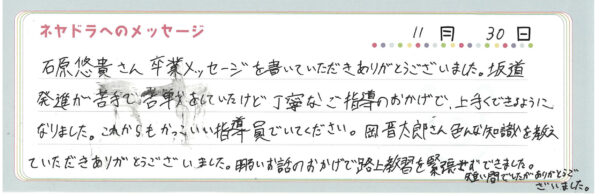 ネヤドラへのメッセージ
11月 30日
石原悠貴さん 卒業メッセージを書いていただきありがとうございました。坂道
発進が苦手で、苦戦をしていたけど丁寧なご指導のおかげで、上手くできるように
なりました。これからもかっこいい指導員でいてください。岡晋太郎さん色んな知識を教え
ていただきありがとうございました。明るいお話のおかげで路上教習を緊張せずできました。
短い間でしたがありがとうご
ざいました。